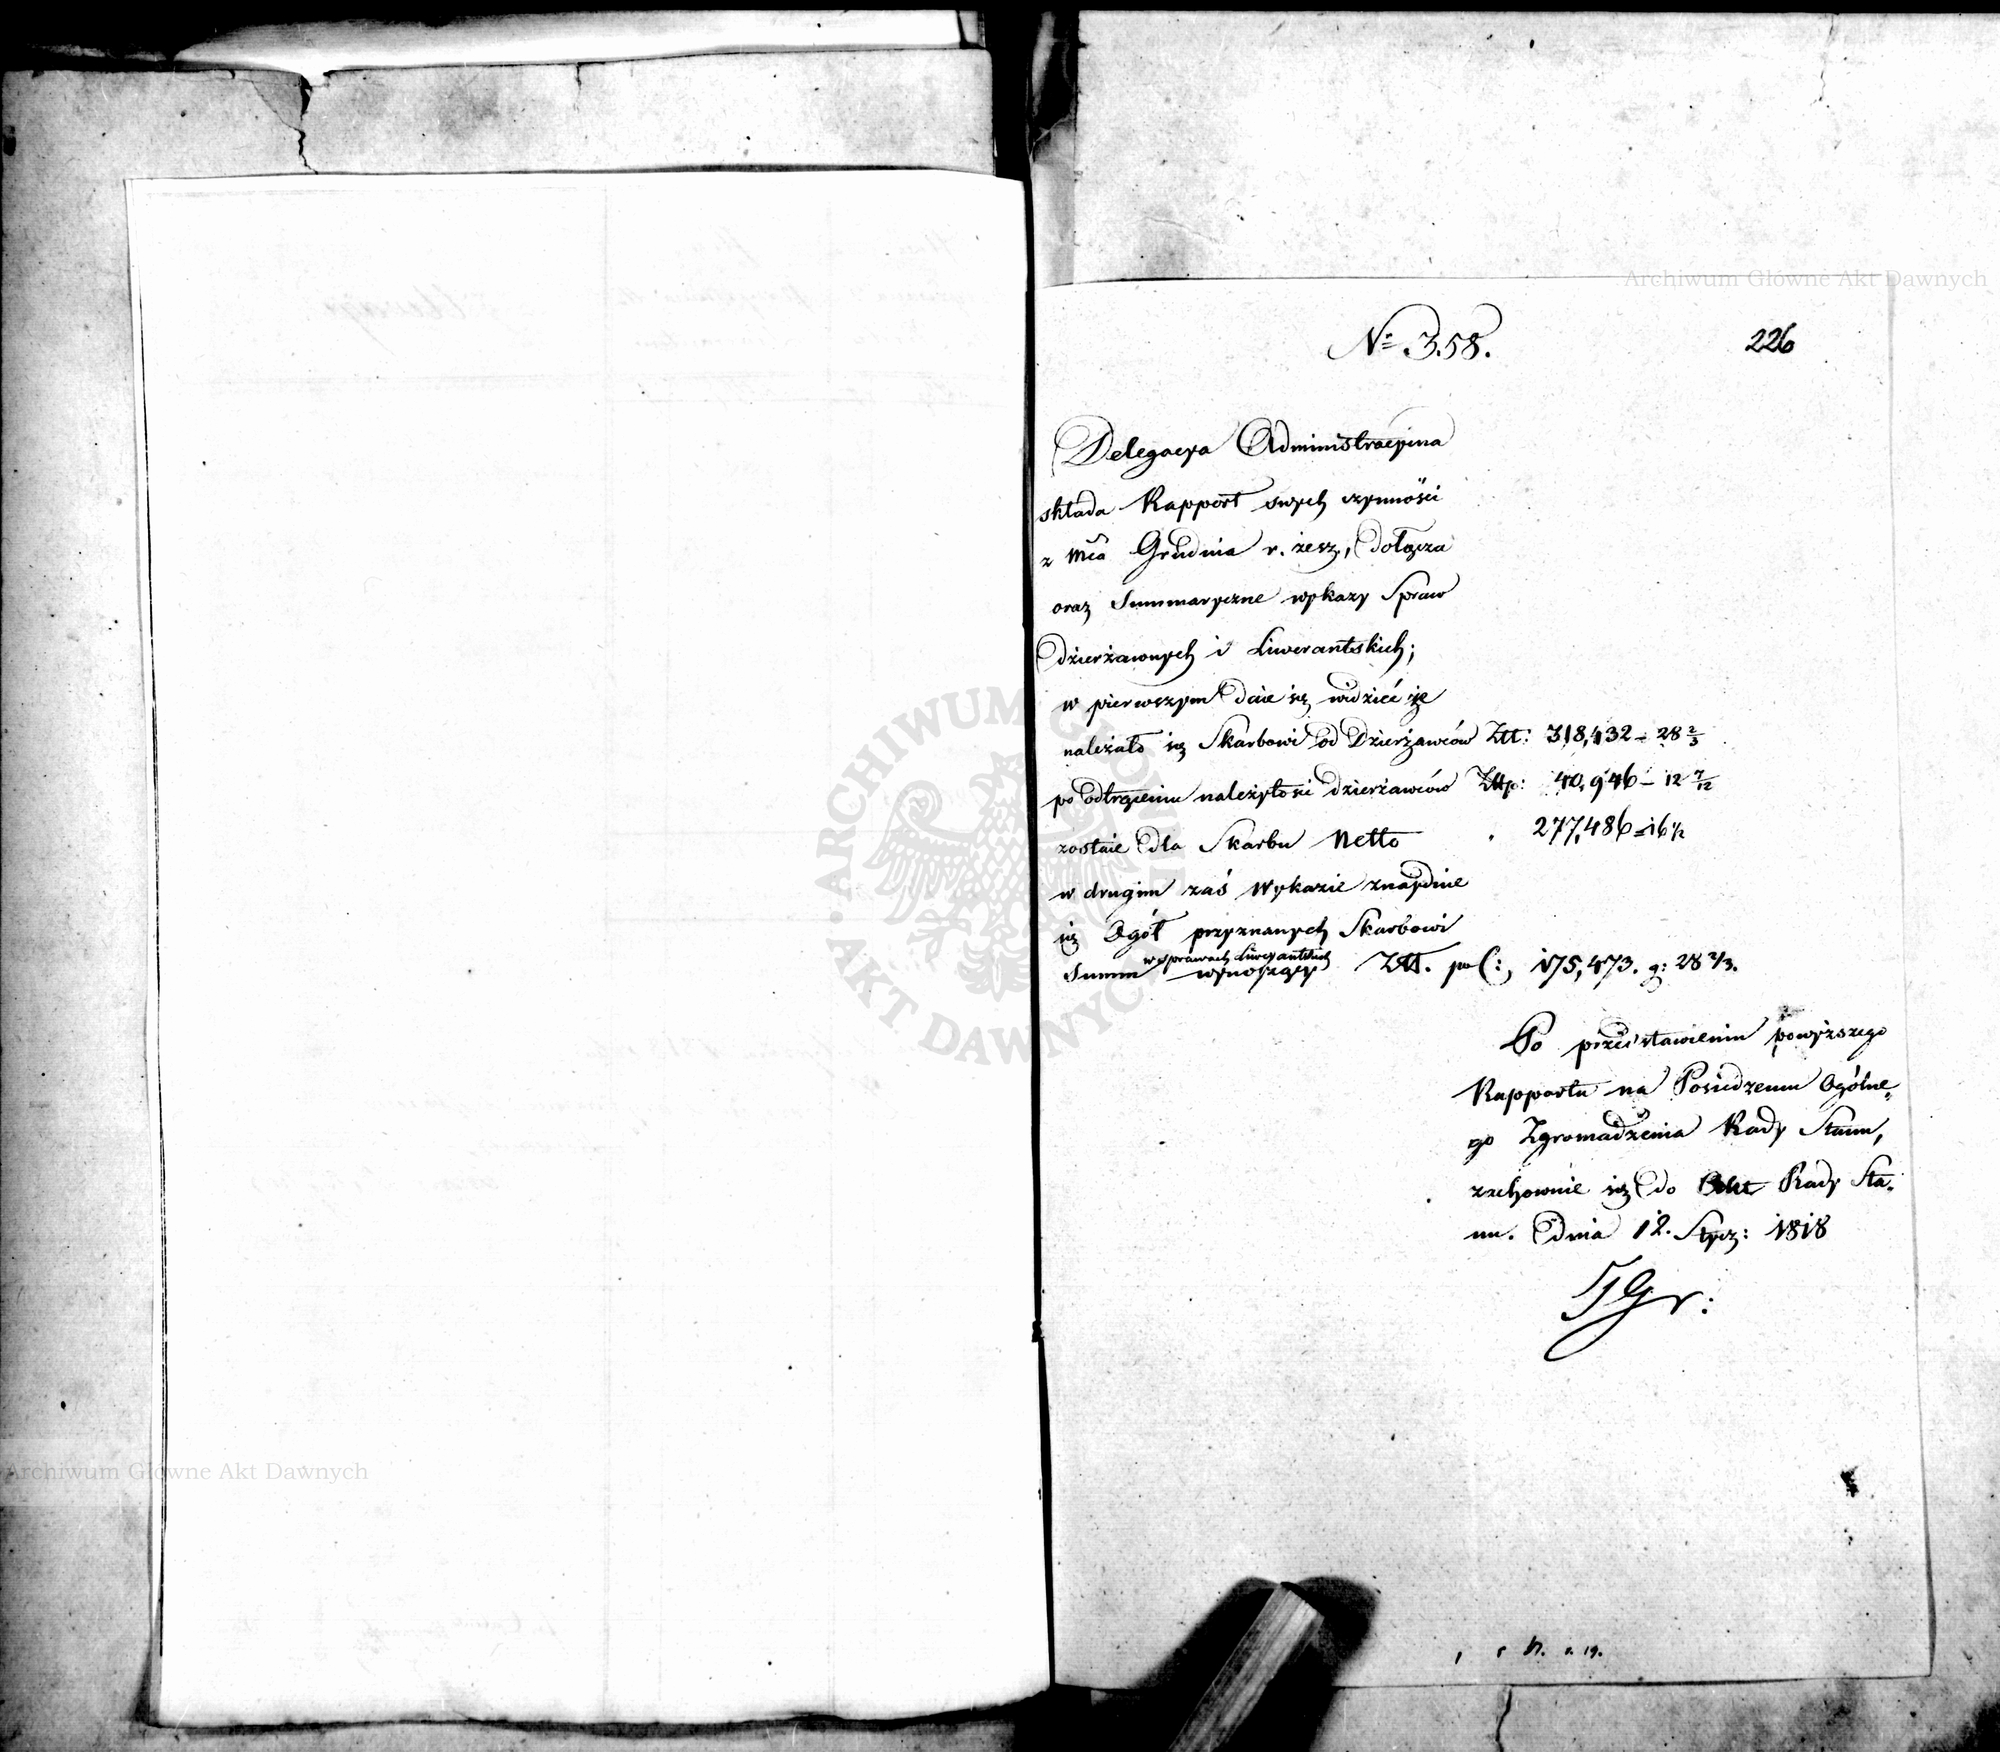 Archiwum Główne Akt Dawnych
No 358.
226
Delegacya Administracyina
składa Rapport swych czynności
z mca Grudnia r. zesz., dołącza
oraz Summaryczne wykazy Spraw
dzierżawnych i Liwerantskich;
w pierwszym daie się widzieć że
należało się Skarbowi od Dzierżawców Ztt: 318,432 = 28 2/3
po odtrąceniu należytości dzierżawców Zttp: 40,946 - 12 7/12
zostaie dla Skarbu Netto 277,486 = 16 1/2
w drugim zaś Wykazie znayduie
się Ogół przyznanych Skarbowi
w sprawach Liwerantskich
Summ wynoszący Ztt. pol:, 175,473. g: 28 2/3.
Po przedstawieniu powyższego
Rapportu na Posiedzeniu Ogólne-
go Zgromadzenia Rady Stanu,
zachowuie się do Akt Rady Sta-
nu. Dnia 12. Stycz: 1818
JGr:
ARCHIWUM GŁÓWNE AKT DAWNYCH
Archiwum Główne Akt Dawnych